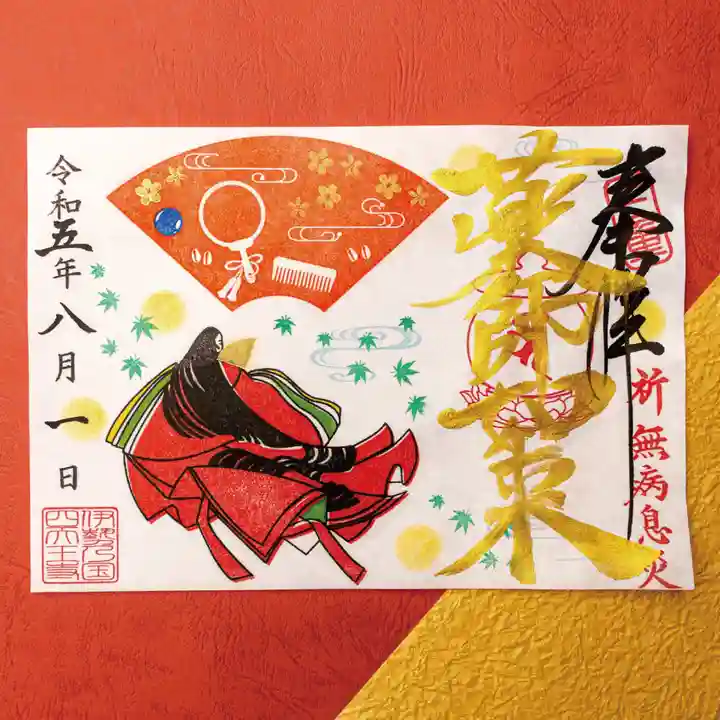 奉拝
祈無病息災
薬師如来
令和五年八月一日
伊勢国
四天王寺